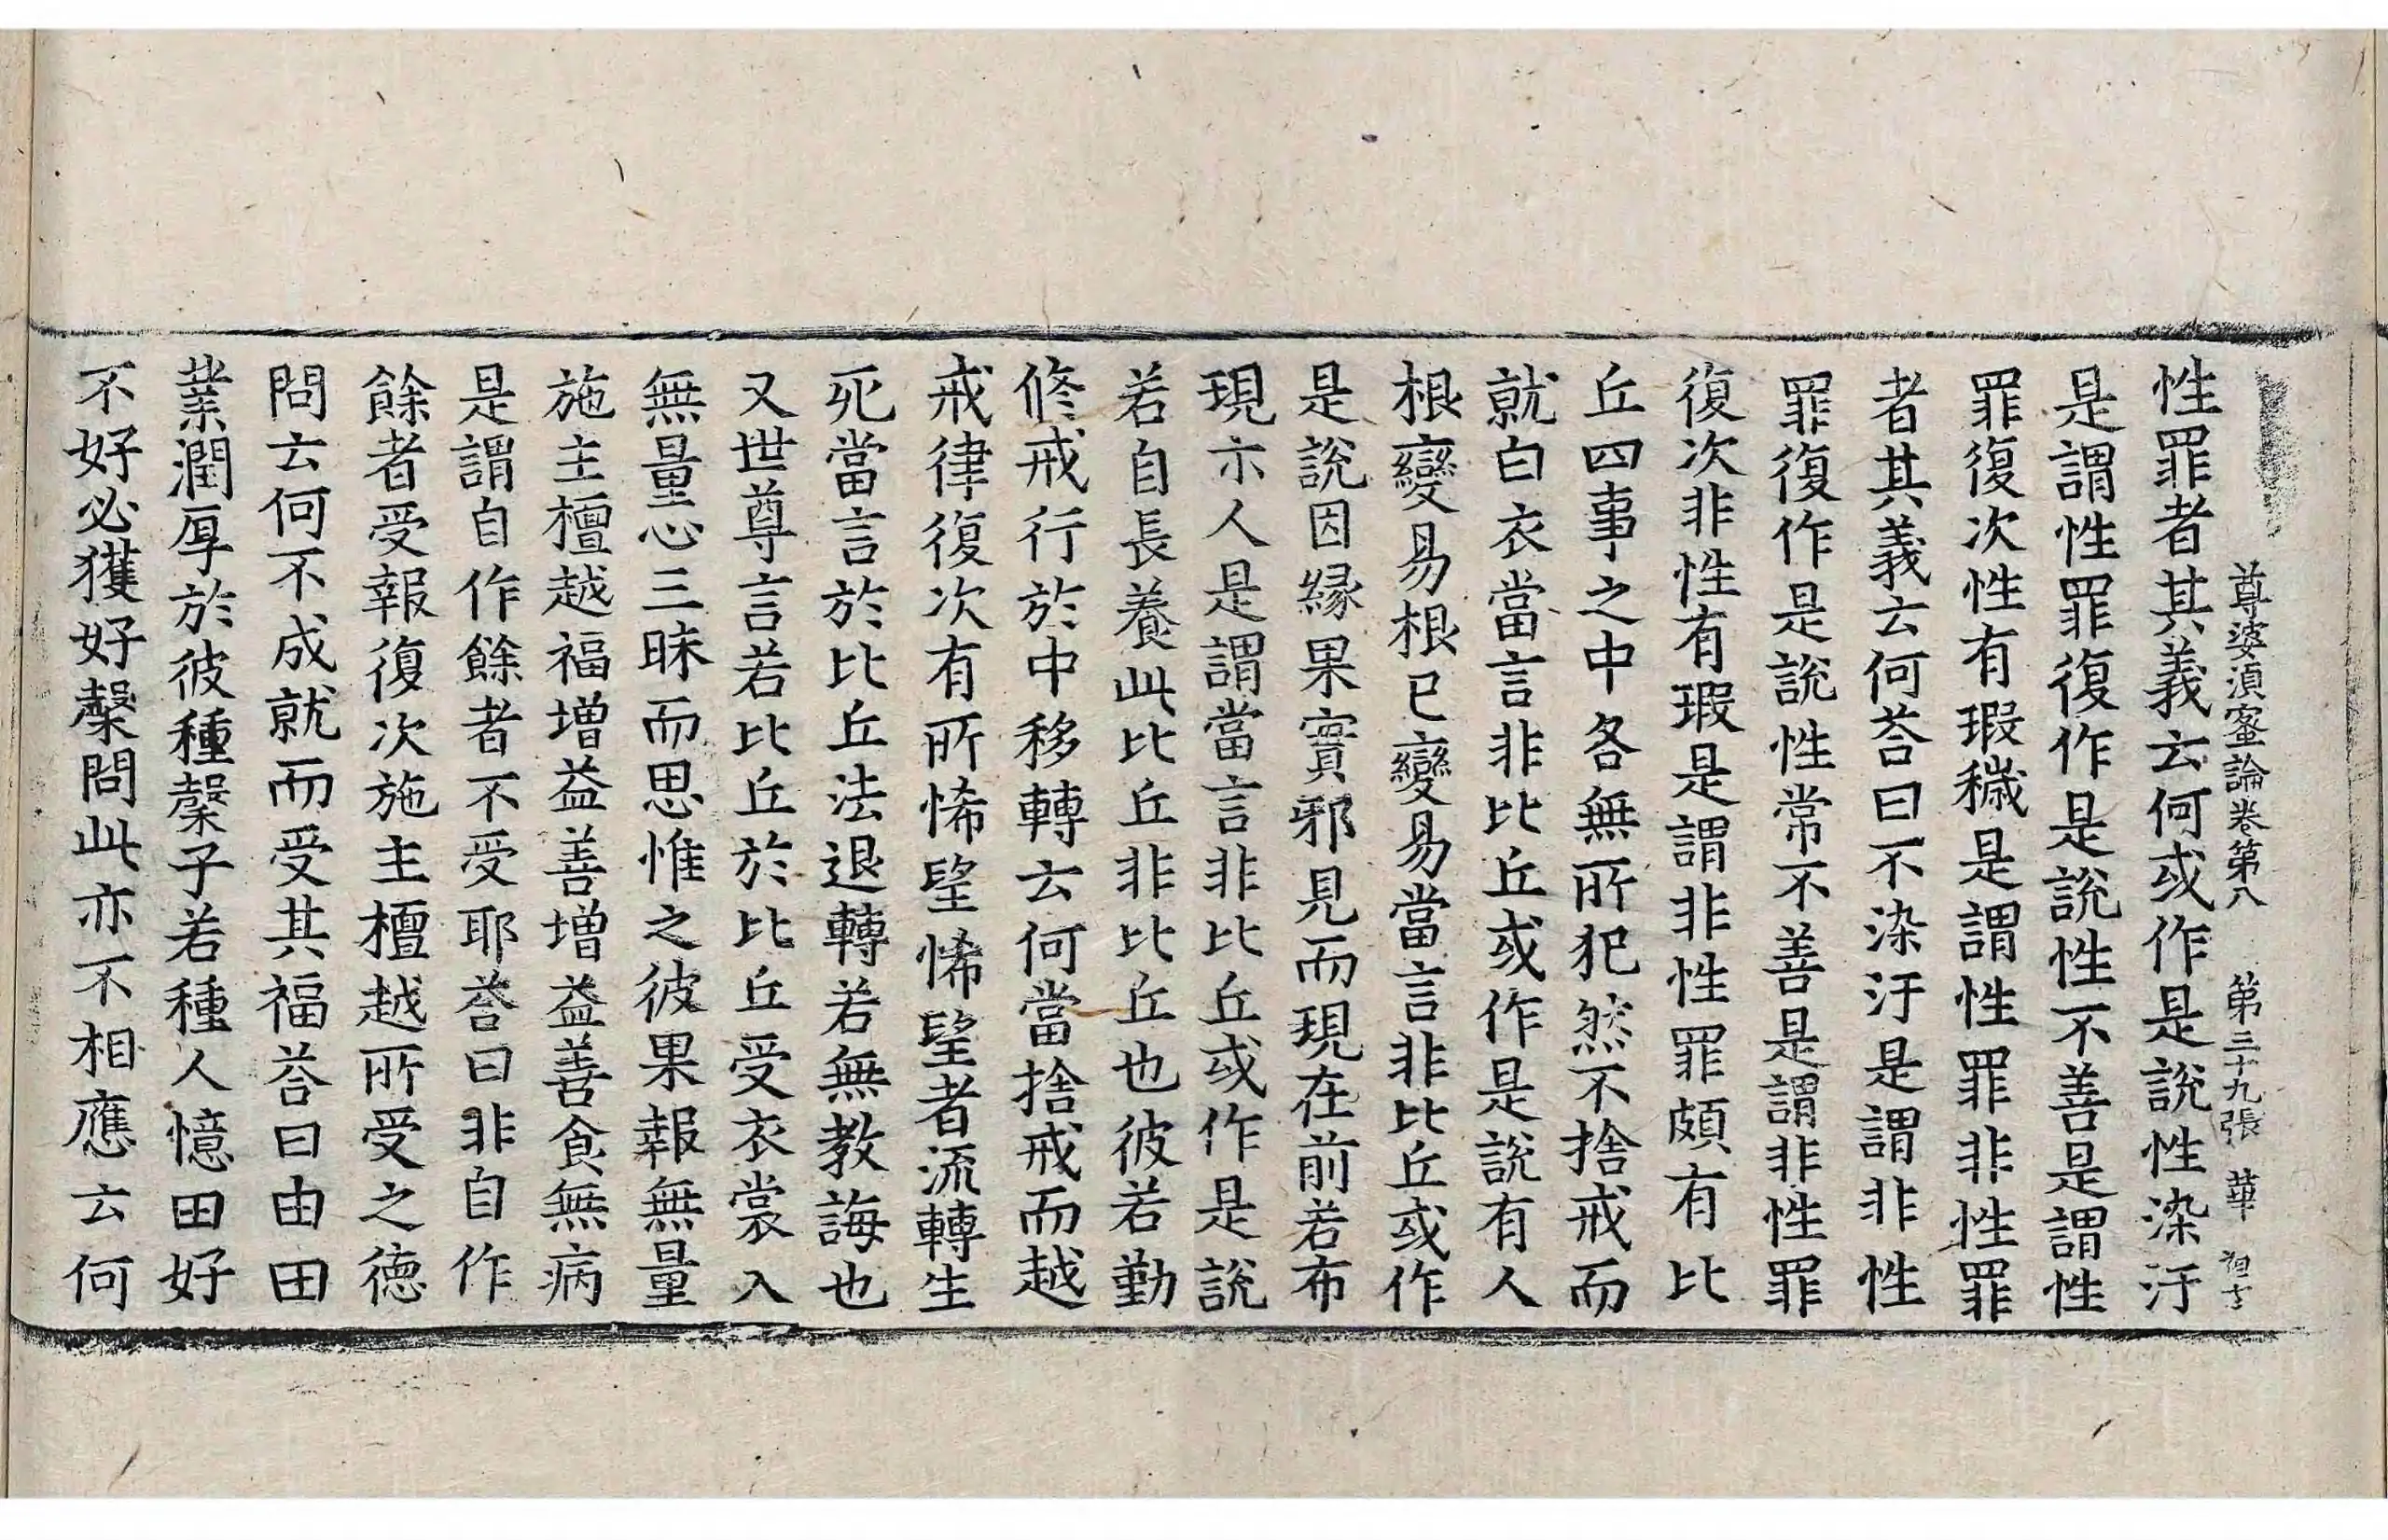 尊婆湏蜜論卷第八 第三十九張 華
性罪者其義云何或作是說性染汙
是謂性罪復作是說性不善是謂性
罪復次性有瑕穢是謂性罪非性罪
者其義云何荅曰不染汙是謂非性
罪復作是說性常不善是謂非性罪
復次非性有瑕是謂非性罪頗有比
丘四事之中各無所犯然不捨戒而
就白衣當言非比丘或作是說有人
根變易根已變易當言非比丘或作
是說因緣果實邪見而現在前若布
現示人是謂當言非比丘或作是說
若自長養此比丘非比丘也彼若勤
修戒行於中移轉云何當捨戒而越
戒律復次有所悕望悕望者流轉生
死當言於比丘法退轉若無教誨也
又世尊言若比丘於比丘受衣裳入
無量心三昧而思惟之彼果報無量
施主檀越福增益善增益善食無病
是謂自作餘者不受耶荅曰非自作
餘者受報復次施主檀越所受之德
問云何不成就而受其福荅曰由田
業潤厚於彼種槃子若種人憶田好
不好必獲好槃問此亦不相應云何